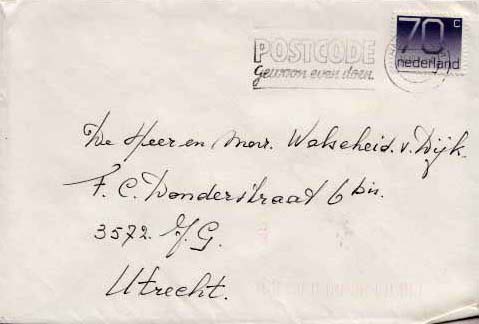 POSTCODE
gewoon even doen
70 c
nederland
De Heer en Mevr. Walscheid. v. Dijk.
F. C. Donderstraat 6 bis.
3572. J. G.
Utrecht.